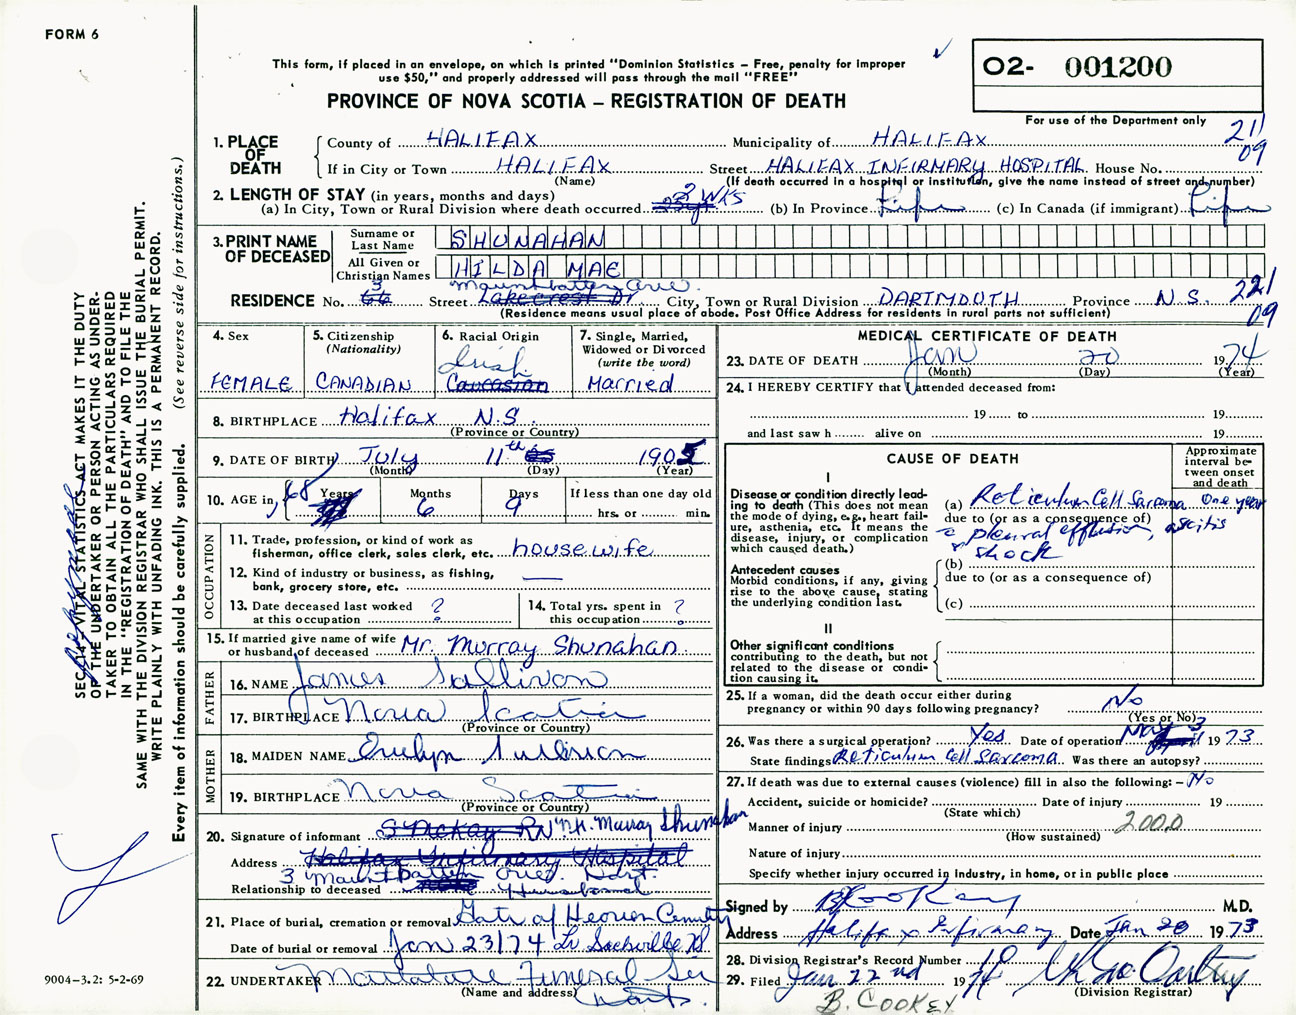 FORM 6
This form, if placed in an envelope, on which is printed "Dominion Statistics – Free, penalty for improper
use $50," and properly addressed will pass through the mail "FREE"
PROVINCE OF NOVA SCOTIA – REGISTRATION OF DEATH
O2- 001200
For use of the Department only
211
09
1. PLACE OF DEATH
County of HALIFAX Municipality of HALIFAX
If in City or Town HALIFAX Street HALIFAX INFIRMARY HOSPITAL House No.
(Name) (If death occurred in a hospital or institution, give the name instead of street and number)
2. LENGTH OF STAY (in years, months and days)
(a) In City, Town or Rural Division where death occurred 2 WKS (b) In Province Life (c) In Canada (if immigrant) Life
3. PRINT NAME OF DECEASED
Surname or Last Name SHUNAHAN
All Given or Christian Names HILDA MAE
3 Mountbatten Ave.
RESIDENCE No. 66 Street Lakecrest Dr City, Town or Rural Division DARTMOUTH Province N.S.
(Residence means usual place of abode. Post Office Address for residents in rural parts not sufficient)
221
09
4. Sex
FEMALE
5. Citizenship
(Nationality)
CANADIAN
6. Racial Origin
Irish
Caucasian
7. Single, Married,
Widowed or Divorced
(write the word)
Married
8. BIRTHPLACE Halifax N.S.
(Province or Country)
9. DATE OF BIRTH July 11th 1905
(Month) (Day) (Year)
10. AGE in 68 Years Months 6 Days 9 If less than one day old
hrs. or min.
OCCUPATION
11. Trade, profession, or kind of work as
fisherman, office clerk, sales clerk, etc. housewife
12. Kind of industry or business, as fishing,
bank, grocery store, etc. —
13. Date deceased last worked
at this occupation ?
14. Total yrs. spent in
this occupation ?
15. If married give name of wife
or husband of deceased Mr. Murray Shunahan
FATHER
16. NAME James Sullivan
17. BIRTHPLACE Nova Scotia
(Province or Country)
MOTHER
18. MAIDEN NAME Evelyn Sullivan
19. BIRTHPLACE Nova Scotia
(Province or Country)
20. Signature of informant S McKay RN Murray Shunahan
Address Halifax Infirmary Hospital
3 Mountbatten Ave. Dart.
Relationship to deceased Husband
21. Place of burial, cremation or removal Gate of Heaven Cemetery
Date of burial or removal Jan 23/74 Lr Sackville N.S.
22. UNDERTAKER Funeral Ser
(Name and address) Dart.
MEDICAL CERTIFICATE OF DEATH
23. DATE OF DEATH Jan 20 1974
(Month) (Day) (Year)
24. I HEREBY CERTIFY that I attended deceased from:
19 to 19
and last saw h alive on 19
CAUSE OF DEATH
Approximate
interval be-
tween onset
and death
I
Disease or condition directly lead-
ing to death (This does not mean
the mode of dying, e.g., heart fail-
ure, asthenia, etc. It means the
disease, injury, or complication
which caused death.)
(a) Reticulum Cell Sarcoma One year
due to (or as a consequence of)
pleural effusion, ascitis
& shock
Antecedent causes
Morbid conditions, if any, giving
rise to the above cause, stating
the underlying condition last.
(b)
due to (or as a consequence of)
(c)
II
Other significant conditions
contributing to the death, but not
related to the disease or condi-
tion causing it.
25. If a woman, did the death occur either during
pregnancy or within 90 days following pregnancy? No
(Yes or No)
26. Was there a surgical operation? Yes Date of operation 3 1973
State findings Reticulum Cell Sarcoma. Was there an autopsy?
27. If death was due to external causes (violence) fill in also the following: – No
Accident, suicide or homicide? Date of injury 19
(State which)
Manner of injury 2000
(How sustained)
Nature of injury
Specify whether injury occurred in industry, in home, or in public place
Signed by B Cookey M.D.
Address Halifax Infirmary Date Jan 20 1973
28. Division Registrar's Record Number 18
29. Filed Jan 22nd 1974
(Division Registrar)
B. COOKEY
SEC. 14—VITAL STATISTICS ACT MAKES IT THE DUTY
OF THE UNDERTAKER OR PERSON ACTING AS UNDER-
TAKER TO OBTAIN ALL THE PARTICULARS REQUIRED
IN THE "REGISTRATION OF DEATH" AND TO FILE THE
SAME WITH THE DIVISION REGISTRAR WHO SHALL ISSUE THE BURIAL PERMIT.
WRITE PLAINLY WITH UNFADING INK. THIS IS A PERMANENT RECORD.
Every item of information should be carefully supplied. (See reverse side for instructions.)
9004-3.2: 5-2-69